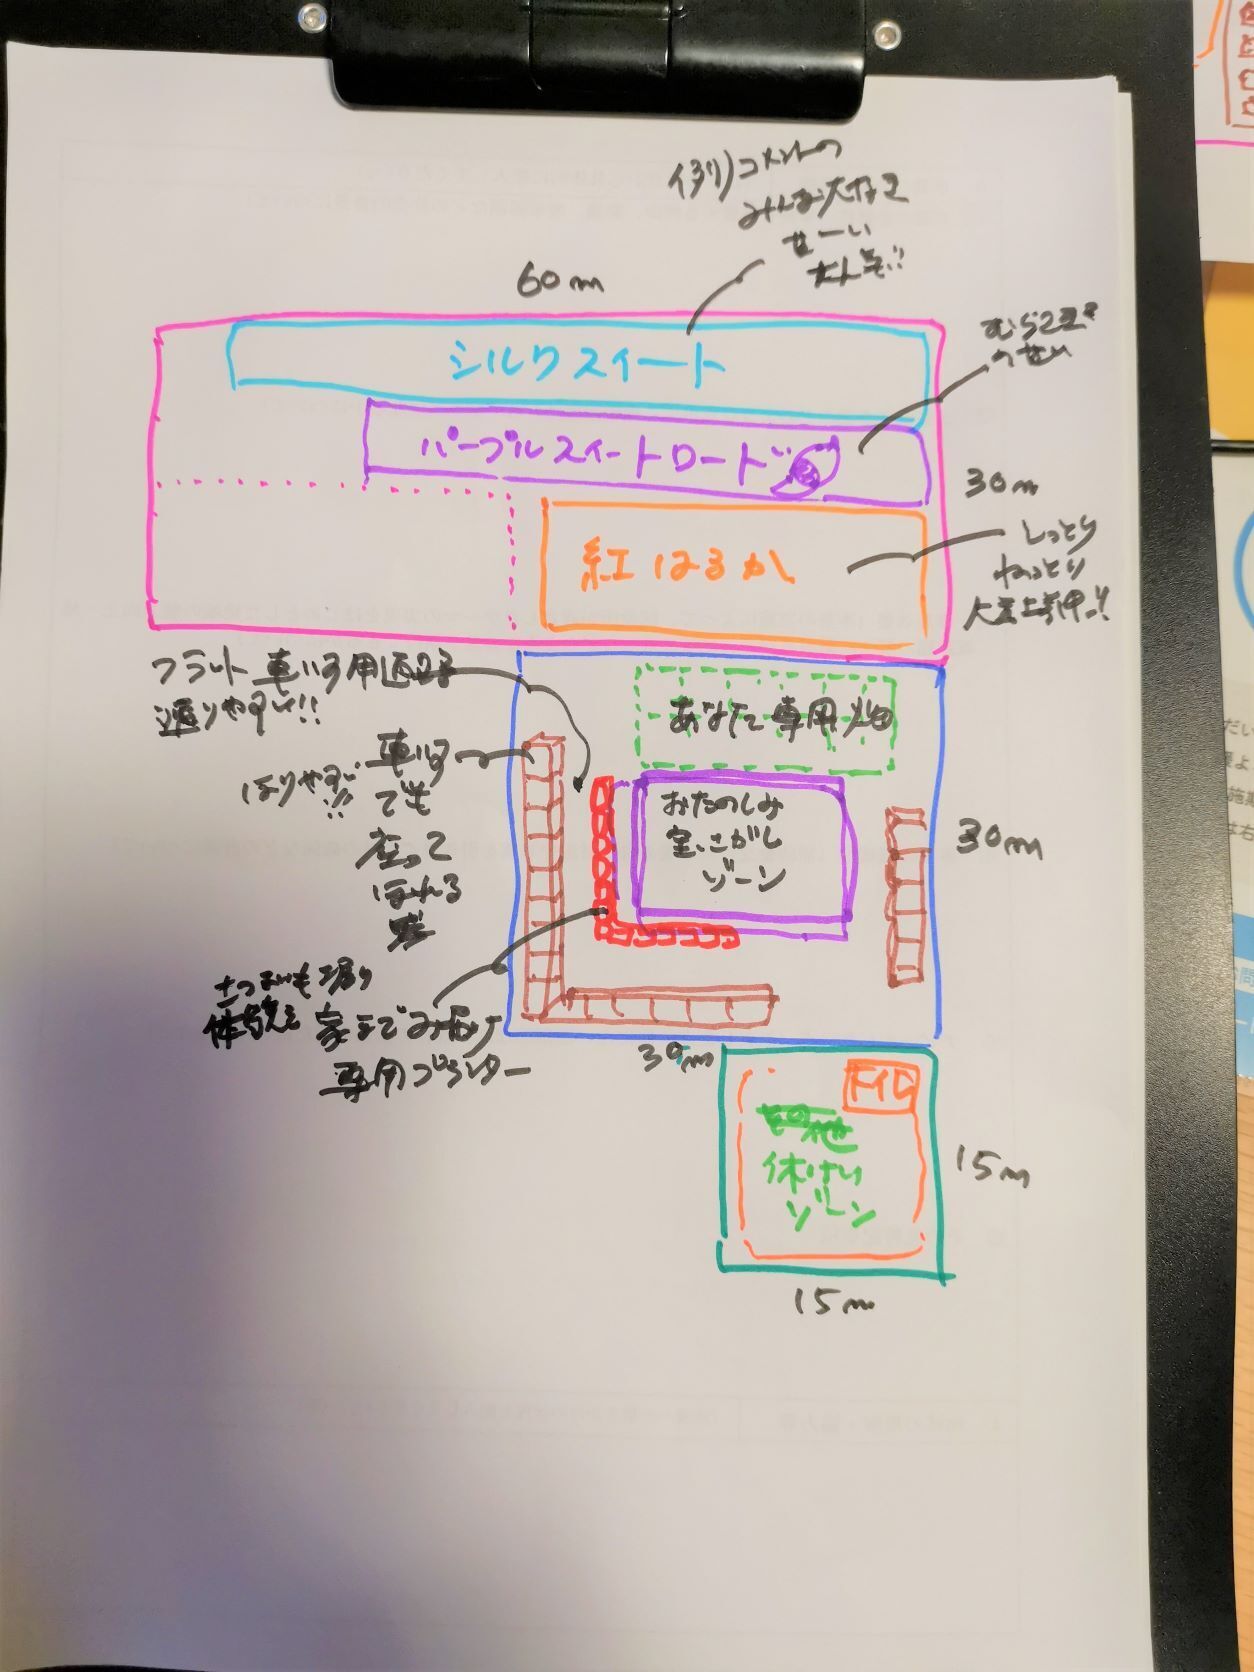 例)コメントの
みんな大好き
せーい
大人気!!
60m
シルクスイート
パープルスイートロード
30m
紅はるか
しっとり
ねっとり
フラット 車いす用通路
通りやすい!!
あなた専用畑
車いす
でも
座って
ほれる
ほりやすい
!!!
おたのしみ
宝さがし
ゾーン
30m
さつまいも掘り
体験
専用プランター
30m
トイレ
その他
休けい
ゾーン
15m
15m